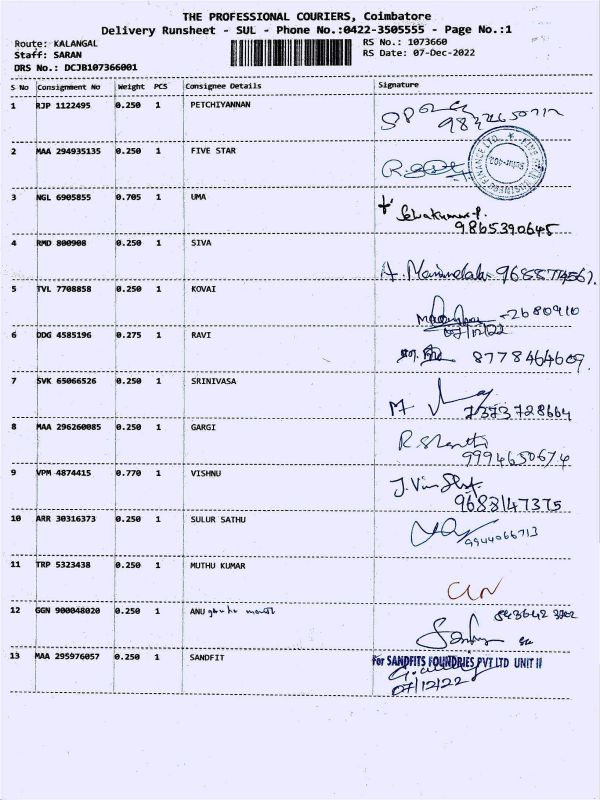 THE PROFESSIONAL COURIERS, Coimbatore
Delivery Runsheet - SUL - Phone No.:0422-3505555 - Page No.:1
Route: KALANGAL RS No.: 1073660
Staff: SARAN RS Date: 07-Dec-2022
DRS No.: DCJB107366001
S No Consignment No Weight PCS Consignee Details Signature
1 RJP 1122495 0.250 1 PETCHIYANNAN
2 MAA 294935135 0.250 1 FIVE STAR
3 NGL 6905855 0.705 1 UMA
Selvakumar.P.
9865390645
4 RMD 800908 0.250 1 SIVA
5 TVL 7708858 0.250 1 KOVAI
2680910
07/12/22
6 DDG 4585196 0.275 1 RAVI
8778464609.
7 SVK 65066526 0.250 1 SRINIVASA
7373728664
8 MAA 296260085 0.250 1 GARGI
R. Shanthi
9994650674
9 VPM 4874415 0.770 1 VISHNU
9688147375
10 ARR 30316373 0.250 1 SULUR SATHU
9944066713
11 TRP 5323438 0.250 1 MUTHU KUMAR
12 GGN 900048020 0.250 1 ANU
13 MAA 295976057 0.250 1 SANDFIT
For SANDFITS FOUNDRIES PVT LTD UNIT II
07/12/22